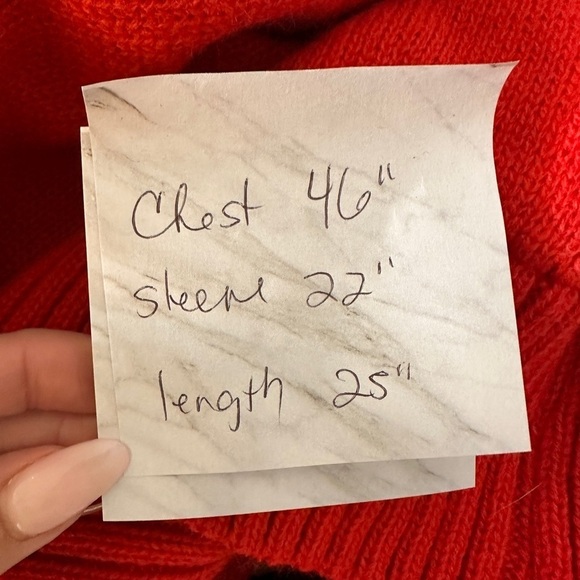 Chest 46"
sleeve 22"
length 25"